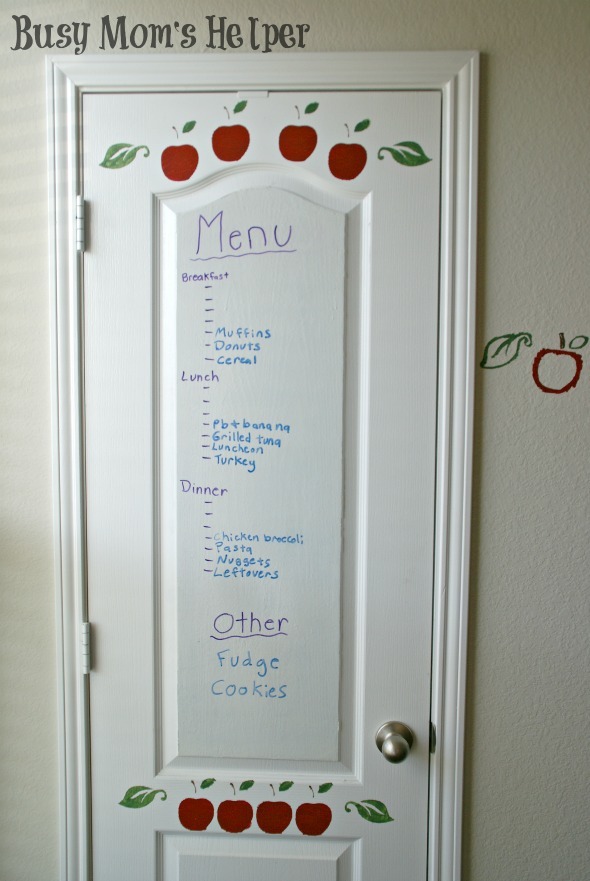 Busy Mom's Helper
Menu
Breakfast
-
-
-
-
- Muffins
- Donuts
- Cereal
Lunch
-
-
-
- Pb + banana
- Grilled tuna
- Luncheon
- Turkey
Dinner
-
-
-
- Chicken broccoli
- Pasta
- Nuggets
- Leftovers
Other
Fudge
Cookies